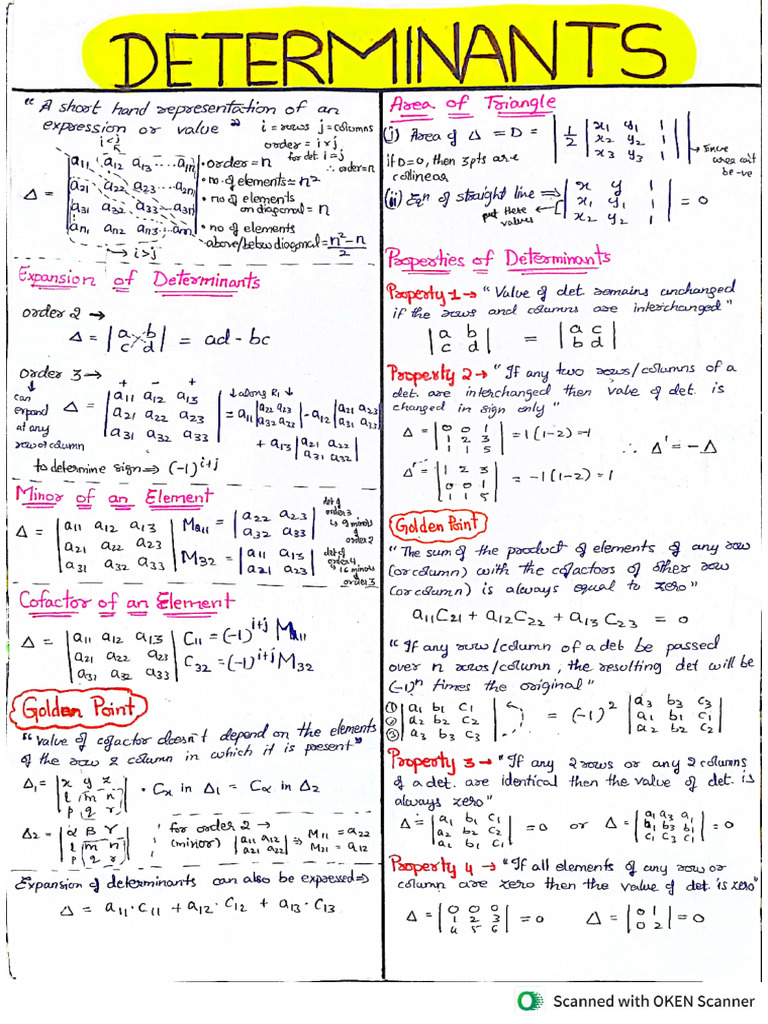 DETERMINANTS
"A short hand representation of an
expression or value" i = rows j = columns
order = i × j
for det. i = j
∴ order = n
i < j
Δ = | a11 a12 a13 ... a1n |
| a21 a22 a23 ... a2n |
| a31 a32 a33 ... a3n |
| an1 an2 an3 ... ann |
→ i > j
• order = n
• no. of elements = n²
• no of elements
on diagonal = n
• no of elements
above/below diagonal = n² - n / 2
Expansion of Determinants
order 2 →
Δ = | a b |
| c d | = ad - bc
order 3 →
can
expand
at any
row or column
+ - +
Δ = | a11 a12 a13 |
| a21 a22 a23 |
| a31 a32 a33 |
↓ along R1 ↓
= a11 | a22 a23 | - a12 | a21 a23 |
| a32 a33 | | a31 a33 |
+ a13 | a21 a22 |
| a31 a32 |
to determine sign ⇒ (-1)^i+j
Minor of an Element
Δ = | a11 a12 a13 |
| a21 a22 a23 |
| a31 a32 a33 |
Ma11 = | a22 a23 |
| a32 a33 |
M32 = | a11 a13 |
| a21 a23 |
det of
order 3
↳ 9 minors
of
order 2
det of
order 4
↳ 16 minors
of
order 3
Cofactor of an Element
Δ = | a11 a12 a13 |
| a21 a22 a23 |
| a31 a32 a33 |
C11 = (-1)^i+j M11
C32 = (-1)^i+j M32
Golden Point
"value of cofactor doesn't depend on the elements
of the row & column in which it is present"
Δ1 = | x y z |
| l m n |
| p q r |
• Cx in Δ1 = Cα in Δ2
Δ2 = | α β γ |
| l m n |
| p q r |
for order 2 →
(minor) | a11 a12 |
| a21 a22 | ⇒ M11 = a22
M21 = a12
Expansion of determinants can also be expressed ⇒
Δ = a11 · C11 + a12 · C12 + a13 · C13
Area of Triangle
(i) Area of Δ = D = 1/2 | x1 y1 1 |
| x2 y2 1 |
| x3 y3 1 |
→ Since
area can't
be -ve
if D=0, then 3pts are
collinear
(ii) Eqn of straight line ⇒ | x y 1 |
| x1 y1 1 |
| x2 y2 1 | = 0
put these
values
Properties of Determinants
Property 1 → "Value of det. remains unchanged
if the rows and columns are interchanged"
| a b | = | a c |
| c d | | b d |
Property 2 → "If any two rows/columns of a
det. are interchanged then value of det. is
changed in sign only"
Δ = | 0 0 1 |
| 1 2 3 |
| 1 1 5 | = 1(1-2) = -1
∴ Δ' = -Δ
Δ' = | 1 2 3 |
| 0 0 1 |
| 1 1 5 | = -1(1-2) = 1
Golden Point
"The sum of the product of elements of any row
(or column) with the cofactors of other row
(or column) is always equal to zero"
a11C21 + a12C22 + a13C23 = 0
"If any row/column of a det be passed
over n rows/column, the resulting det will be
(-1)^n times the original"
① | a1 b1 c1 |
② | a2 b2 c2 |
③ | a3 b3 c3 |
= (-1)² | a3 b3 c3 |
| a1 b1 c1 |
| a2 b2 c2 |
Property 3 → "If any 2 rows or any 2 columns
of a det. are identical then the value of det. is
always zero"
Δ = | a1 b1 c1 |
| a2 b2 c2 |
| a1 b1 c1 | = 0 or Δ = | a1 a3 a1 |
| b1 b3 b1 |
| c1 c3 c1 | = 0
Property 4 → "If all elements of any row or
column are zero then the value of det. is zero"
Δ = | 0 0 0 |
| 1 2 3 |
| 4 5 6 | = 0 Δ = | 0 1 |
| 0 2 | = 0
Scanned with OKEN Scanner